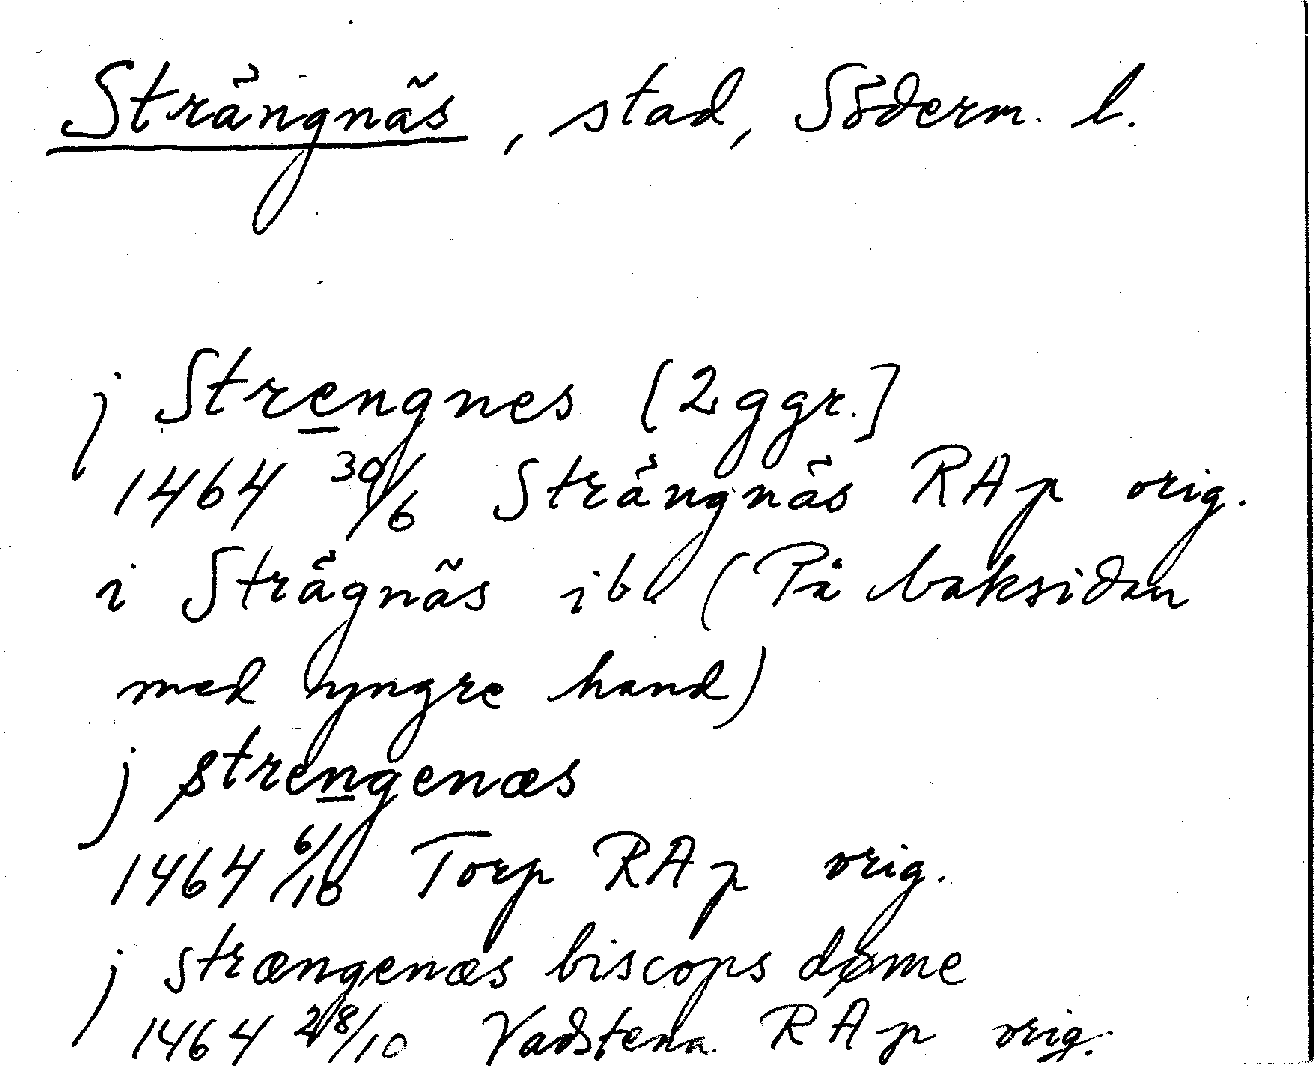 Strängnäs, stad, Söderm. l.
j Strengnes [2 ggr.]
1464 30/6 Strängnäs RAp orig.
i Strägnäs ib. (På baksidan
med yngre hand)
j strengenæs
1464 6/10 Torp RAp orig.
j strængenæs biscops døme
1464 28/10 Vadstena RAp orig.